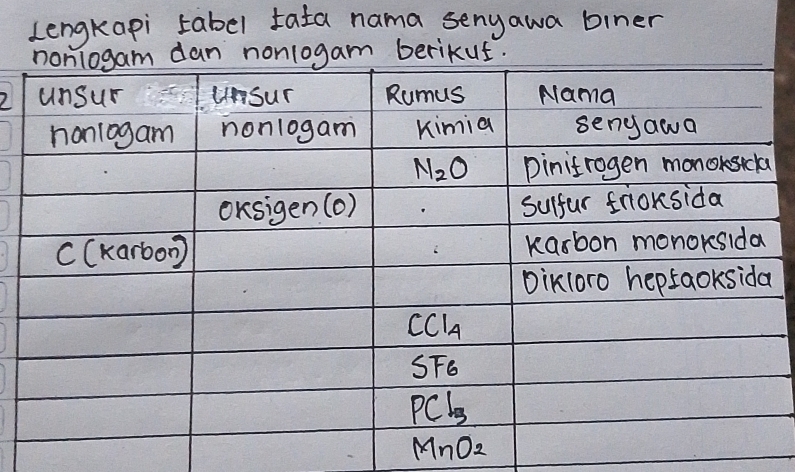 Lengkapi tabel tata nama senyawa biner
nonlogam dan nonlogam berikut.
2 unsur unsur Rumus Nama
nonlogam nonlogam Kimia senyawa
N₂O Dinitrogen monoksida
oksigen (O) Sulfur trioksida
C (Karbon) Karbon monoksida
Dikloro heptaoksida
CCl4
SF6
PCl3
MnO2